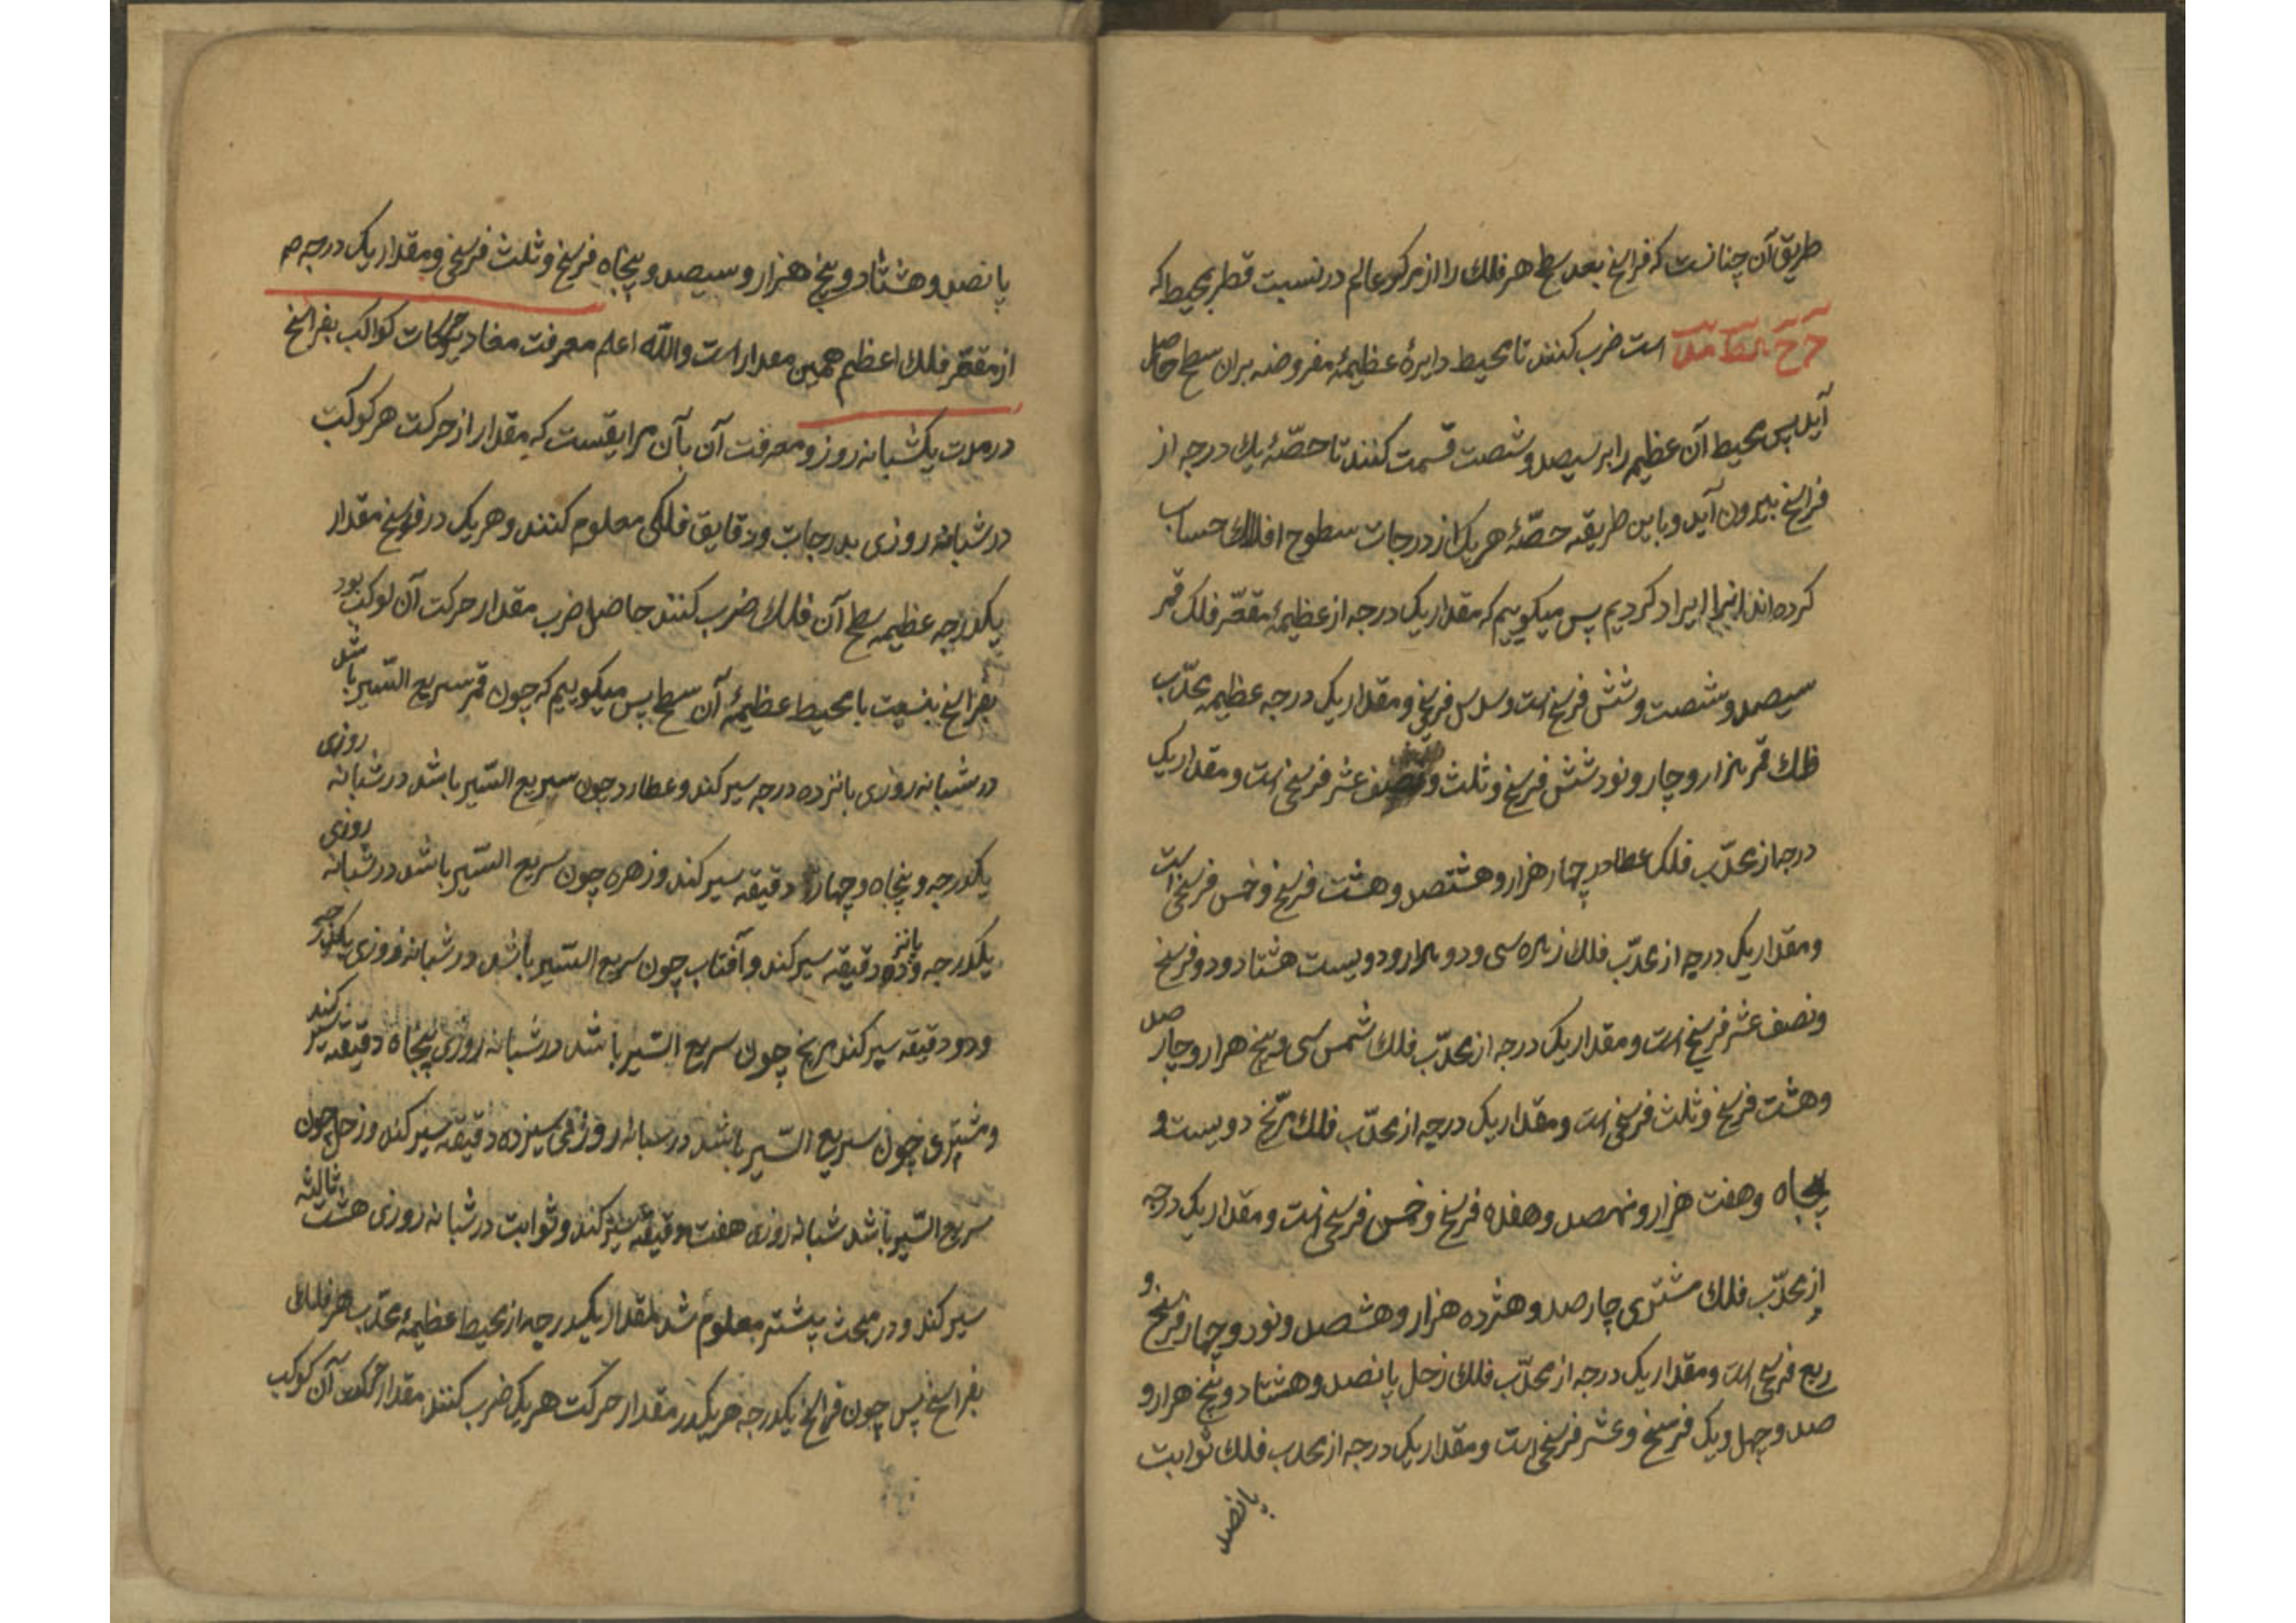 طریق آن چنانست که فراسخ بعد سطح هر فلک را از مرکز عالم در نسبت قطر بمحیط که
است ضرب کنند تا محیط دایرهٔ عظیمهٔ مفروضه بران سطح حاصل
آید پس محیط آن عظیمه را بر سیصد و شصت قسمت کنند تا حصّهٔ یک درجه از
فراسخ بیرون آید و باین طریقه حصّهٔ هر یک از درجات سطوح افلاک حساب
کرده‌اند ایراد کردیم پس میکوییم که مقدار یک درجه از عظیمهٔ مقعّر فلک قمر
سیصد و شصت و شش فرسخ است و سدس فرسخ و مقدار یک درجه عظیمه محدّب
فلک قمر هزار و چار و نود شش فرسخ و ثلث و نصف عشر فرسخی است و مقدار یک
درجه از محدّب فلک عطارد چهار هزار و هشتصد و هشت فرسخ و خمس فرسخی است
و مقدار یک درجه از محدّب فلک زهره سی و دو هزار و دویست هشتاد و دو فرسخ
و نصف عشر فرسخی است و مقدار یک درجه از محدّب فلک شمس سی و پنج هزار و چار صد
و هشت فرسخ و ثلث فرسخی است و مقدار یک درجه از محدّب فلک مریّخ دویست و
پنجاه و هفت هزار و نهصد و هفده فرسخ و خمس فرسخی است و مقدار یک درجه
از محدّب فلک مشتری چار صد و هژده هزار و هشصد و نود و چهار فرسخ و
ربع فرسخی است و مقدار یک درجه از محدّب فلک زحل پانصد و هشتاد و پنج هزار و
صد و چهل و یک فرسخ و عشر فرسخی است و مقدار یک درجه از محدب فلک ثوابت
پانصد
پانصد و هشتاد و پنج هزار و سیصد و پنجاه فرسخ و ثلث فرسخی و مقدار یک درجه
از مقعّر فلک اعظم همین مقدار است والله اعلم معرفت مقادیر حرکات کواکب بفراسخ
در مدت یکشبانه روز و معرفت آن بآن مرا یقست که مقدار از حرکت هر کوکب
در شبانه روزی بدرجات و دقایق فلکی معلوم کنند و هر یک در فرسخ مقدار
یکدرجه عظیمه سطح آن فلک ضرب کنند حاصل ضرب مقدار حرکت آن کوکب بود
بفراسخ بنسبت با محیط عظیمهٔ آن سطح پس میکوییم که چون قمر سریع السّیر باشد
در شبانه روزی پانزده درجه سیر کند و عطارد چون سریع السّیر باشد در شبانه روزی
یکدرجه و پنجاه و چهار دقیقه سیر کند و زهره چون سریع السّیر باشد در شبانه روزی
یکدرجه و پانزده دقیقه سیر کند و آفتاب چون سریع السّیر باشد در شبانه روزی یکدرجه
و دو دقیقه سیر کند مریخ چون سریع السّیر باشد در شبانه روزی پنجاه دقیقه سیر کند
و مشتری چون سریع السّیر باشد در شبانه روزی سیزده دقیقه سیر کند و زحل چون
سریع السّیر باشد شبانه روزی هفت دقیقه سیر کند و ثوابت در شبانه روزی هشت ثالثه
سیر کند و در مبحث پیشتر معلوم شد مقدار یکدرجه از محیط عظیمهٔ محدّب هر فلک
بفراسخ پس چون فراسخ یکدرجه هر یک در مقدار حرکت هر یک ضرب کنند مقدار حرکت آن کوکب